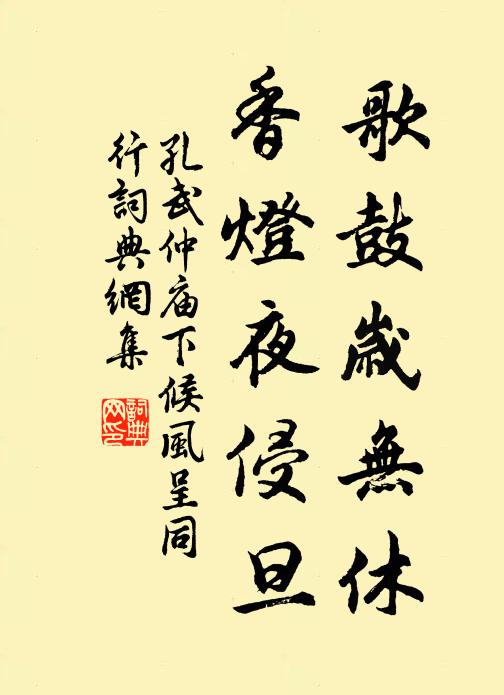 歌鼓歲無休
香燈夜侵旦
孔武仲庙下候風呈同
行詞典網集
詞典
网印